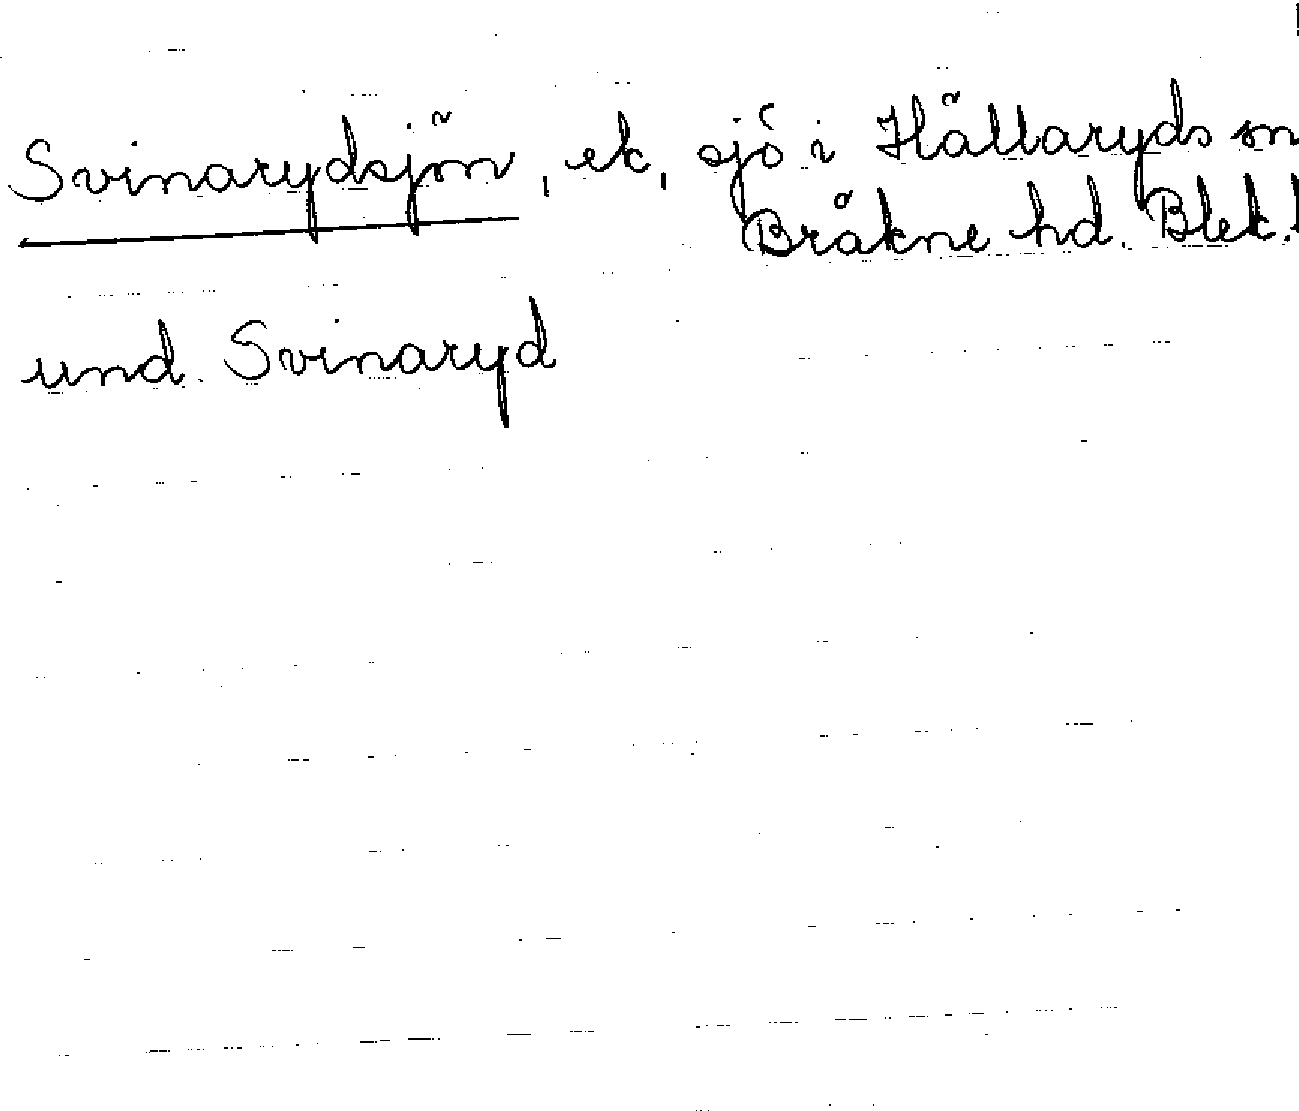 Svinarydsjön, ek, sjö i Hällaryds sn
Bräkne hd. Blek.l
und. Svinaryd